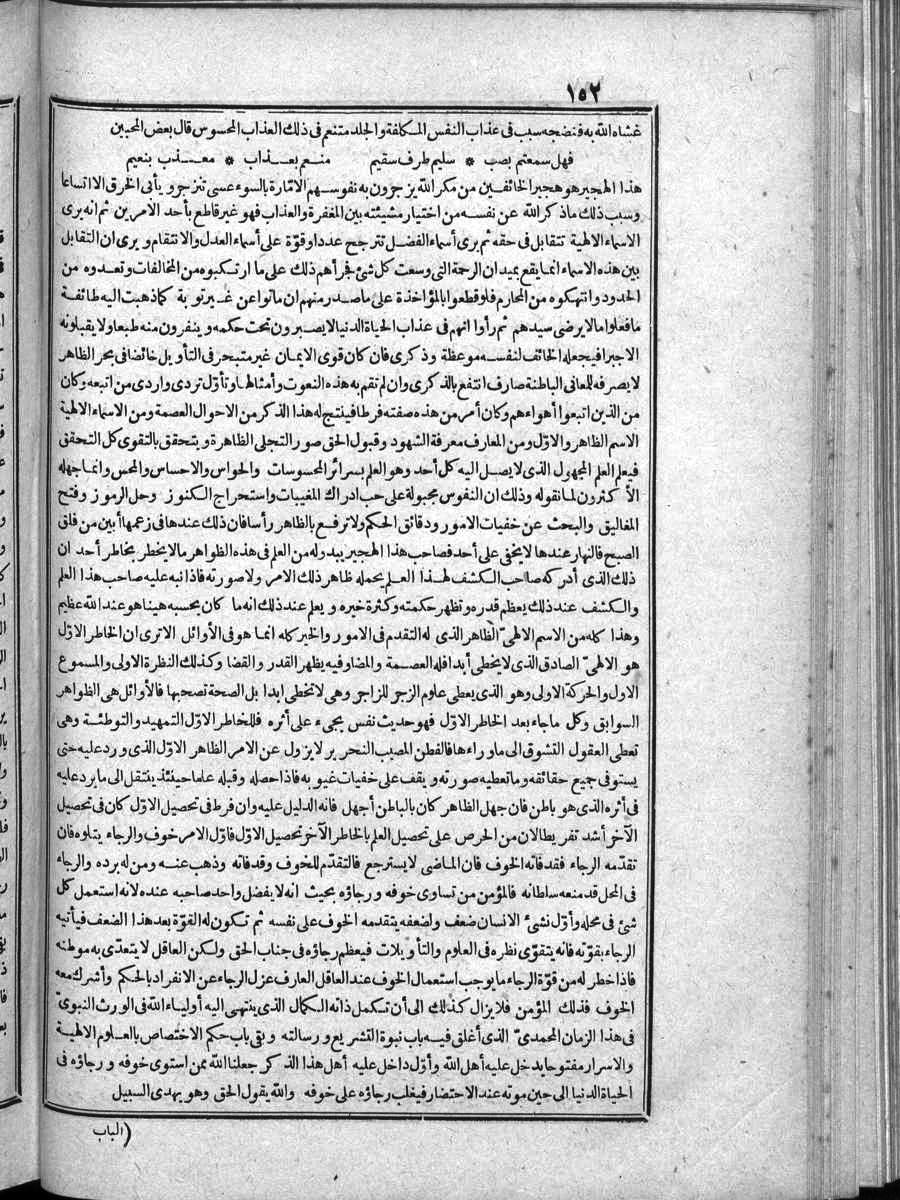 ١٥٢
غشاه الله به فنضجه سبب فى عذاب النفس المكلفة والجلد متنعم فى ذلك العذاب المحسوس قال بعض المحبين
فهل سمعتم بصب * سليم طرف سقيم منعم بعذاب * معذب بنعيم
هذا الهجير هو هجير الخائفين من مكر الله يزجرون به نفوسهم الامارة بالسوء عسى تنزجر ويأبى الخرق الا اتساعا
وسبب ذلك ما ذكر الله عن نفسه من اختيار مشيئته بين المغفرة والعذاب فهو غير قاطع بأحد الامرين ثم انه يرى
الاسماء الالهية تتقابل فى حقه ثم يرى أسماء الفضل تترجح عددا وقوة على أسماء العدل والانتقام ويرى ان التقابل
بين هذه الاسماء انما يقع بميدان الرحمة التى وسعت كل شئ فجرأهم ذلك على ما ارتكبوه من المخالفات وتعدوه من
الحدود وانتهكوه من المحارم فلو قطعوا بالمؤاخذة على ما صدر منهم ان ماتوا عن غير توبة كما ذهبت اليه طائفة
ما فعلوا ما لا يرضى سيدهم ثم رأوا انهم فى عذاب الحياة الدنيا لا يصبرون تحت حكمه وينفرون منه طبعا ولا يقبلونه
الاجبرا فيجعله الخائف لنفسه موعظة وذكرى فان كان قوى الايمان غير متبحر فى التأويل خائضا فى بحر الظاهر
لا يصرفه للمعانى الباطنة صارف انتفع بالذكرى وان لم تقم به هذه النعوت وأمثالها وتأول تردى واردى من اتبعه وكان
من الذين اتبعوا أهواءهم وكان أمر من هذه صفته فرطا فينتج له هذا الذكر من الاحوال العصمة ومن الاسماء الالهية
الاسم الظاهر والاول ومن المعارف معرفة الشهود وقبول الحق صور التجلى الظاهرة ويتحقق بالتقوى كل التحقق
فيعلم العلم المجهول الذى لا يصل اليه كل أحد وهو العلم بسرائر المحسوسات والحواس والاحساس والمحس وانما جهله
الأكثرون لما نقوله وذلك ان النفوس مجبولة على حب ادراك المغيبات واستخراج الكنوز وحل الرموز وفتح
المغاليق والبحث عن خفيات الامور ودقائق الحكم ولا ترفع بالظاهر رأسا فان ذلك عندها فى زعمها أبين من فلق
الصبح فالنهار عندها لا يخفى على أحد فصاحب هذا الهجير يبدو له من العلم فى هذه الظواهر ما لا يخطر بخاطر أحد ان
ذلك الذى أدركه صاحب الكشف لهذا العلم يحمله ظاهر ذلك الامر ولا صورته فاذا نبه عليه صاحب هذا العلم
والكشف عند ذلك يعظم قدره وتظهر حكمته وكثرة خيره ويعلم عند ذلك انه ما كان يحسبه هينا هو عند الله عظيم
وهذا كله من الاسم الالهىّ الظاهر الذى له التقدم فى الامور والخير كله انما هو فى الأوائل الاترى ان الخاطر الاول
هو الالهىّ الصادق الذى لا يخطى أبدا فله العصمة والمضاو فيه يظهر القدر والقضا وكذلك النظرة الاولى والمسموع
الاول والحركة الاولى وهو الذى يعطى علوم الزجر للزاجر وهى لا تخطى ابدا بل الصحة تصحبها فالأوائل هى الظواهر
السوابق وكل ما جاء بعد الخاطر الاول فهو حديث نفس يجىء على أثره فللخاطر الاول التمهيد والتوطئة وهى
تعطى العقول التشوق الى ما وراءها فالفطن المصيب النحرير لا يزول عن الامر الظاهر الاول الذى ورد عليه حتى
يستوفى جميع حقائقه وما تعطيه صورته ويقف على خفيات غيوبه فاذا حصله وقبله علما حينئذ ينتقل الى ما يرد عليه
فى أثره الذى هو باطن فان جهل الظاهر كان بالباطن أجهل فانه الدليل عليه وان فرط فى تحصيل الاول كان فى تحصيل
الآخر أشد تفريطا لان من الحرص على تحصيل العلم بالخاطر الآخر تحصيل الاول فاول الامر خوف والرجاء يتلوه فان
تقدمه الرجاء فقد فاته الخوف فان الماضى لا يسترجع فالتقدم للخوف وقد فاته وذهب عنه ومن له برده والرجاء
فى المحل قد منعه سلطانه فالمؤمن من تساوى خوفه ورجاؤه بحيث انه لا يفضل واحد صاحبه عنده لانه استعمل كل
شئ فى محله وأول نشئ الانسان ضعف ولضعفه يتقدمه الخوف على نفسه ثم تكون له القوة بعد هذا الضعف فيأتيه
الرجاء بقوته فانه يتقوى نظره فى العلوم والتأويلات فيعظم رجاؤه فى جناب الحق ولكن العاقل لا يتعدى به موطنه
فاذا خطر له من قوة الرجاء ما يوجب استعمال الخوف عند العاقل العارف عزل الرجاء عن الانفراد بالحكم وأشرك معه
الخوف فذلك المؤمن فلا يزال كذلك الى أن تكمل ذاته الكمال الذى ينتهى اليه أولياء الله فى الورث النبوىّ
فى هذا الزمان المحمدىّ الذى أغلق فيه باب نبوة التشريع ورسالته وبقى باب حكم الاختصاص بالعلوم الالهية
والاسرار مفتوحا يدخل عليه أهل الله وأول داخل عليه أهل هذا الذكر جعلنا الله ممن استوى خوفه ورجاؤه فى
الحياة الدنيا الى حين موته عند الاحتضار فيغلب رجاؤه على خوفه والله يقول الحق وهو يهدى السبيل
(الباب